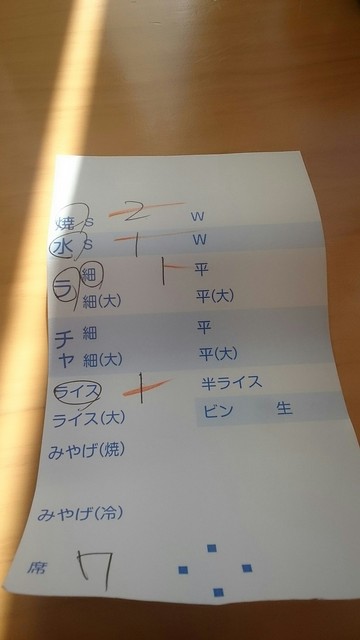 焼 S 2 W
水 S 1 W
ラ 細 1 平
細(大) 平(大)
チャ 細 平
細(大) 平(大)
ライス 1 半ライス
ライス(大) ビン 生
みやげ(焼)
みやげ(冷)
席 7